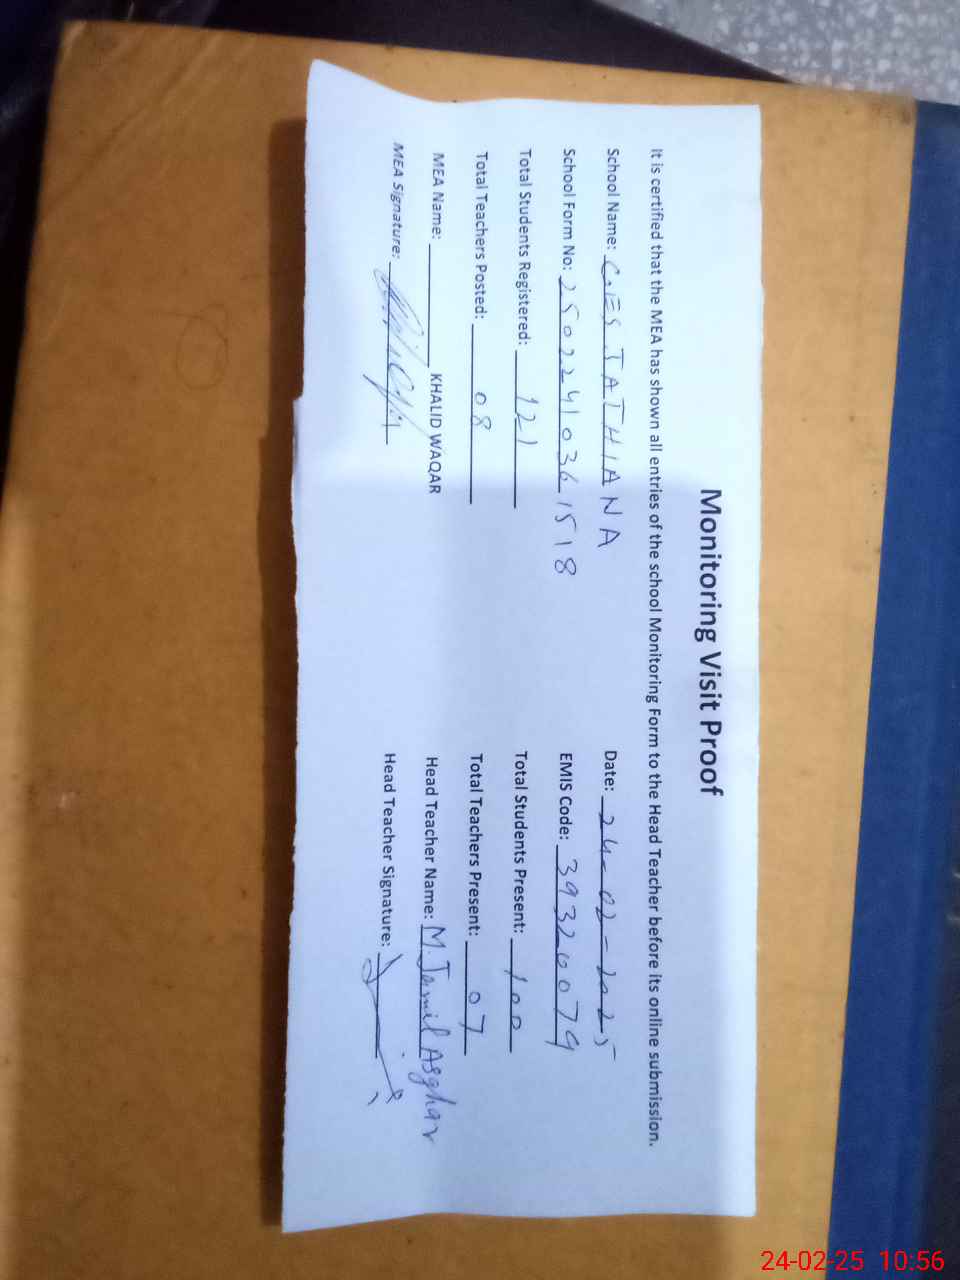 Monitoring Visit Proof
It is certified that the MEA has shown all entries of the school Monitoring Form to the Head Teacher before its online submission.
School Name: GES JATHIANA Date: 24-02-2025
School Form No: 25022410361518 EMIS Code: 39320079
Total Students Registered: 121 Total Students Present: 100
Total Teachers Posted: 08 Total Teachers Present: 07
MEA Name: KHALID WAQAR Head Teacher Name: M. Jamil Asghar
MEA Signature: Head Teacher Signature:
24-02-25 10:56